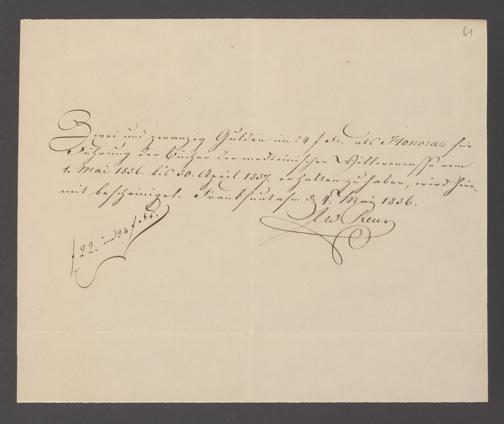 61
Zwei und zwanzig Gulden im 24 f. Fß. als Honorar für
Führung der Bücher der medicinischen Wittwencasse vom
1. Mai 1836. bis 30. April 1837. erhalten zu haben, wird hier-
mit bescheiniget. Frankfurt a/m d. 4. Mai 1836.
f 22. im 24 f. Fß.